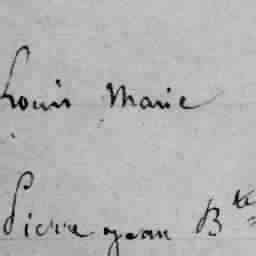 Louis Marie
Pierre jean Bte